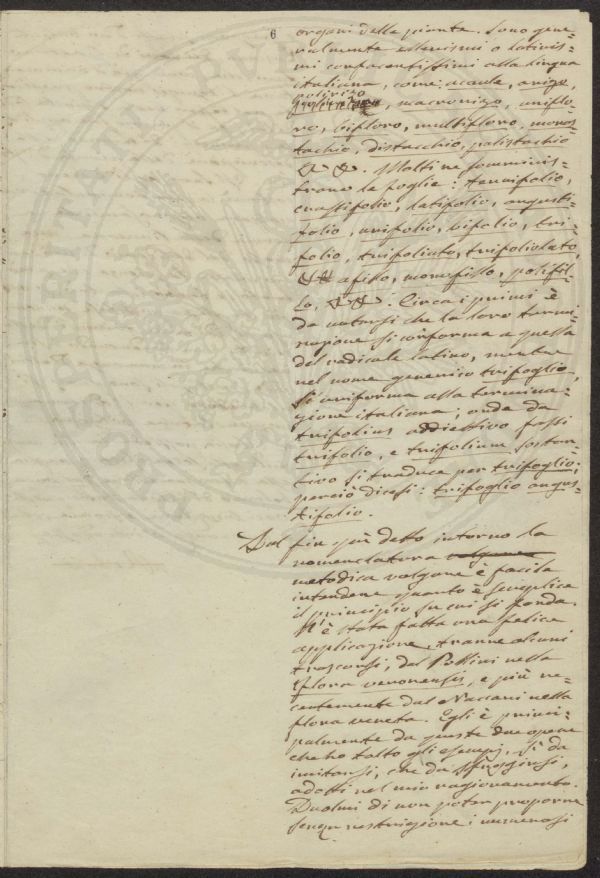 6
organi delle piante. Sono gene=
ralmente ellenismi o latinis=
mi confacentissimi alla lingua
italiana, come: acaule,
polirizo
macrorizo, uniflo=
ro, bifloro, multifloro, monos=
tachio, distacchio, polistachio
&. &. Molti ne somminis=
trano le foglie: tenuifolio,
crassifolio, latifolio, angusti=
folio, unifolio, bifolio, tri=
folio, trifoliato, trifoliolato,
afillo, monofillo, polifil=
lo, &. &. Circa i primi è
da notarsi che la loro termi=
nazione si conforma a quella
del radicale latino, mentre
nel nome generico trifoglio,
si uniforma alla termina=
zione italiana; onde da
trifolius addiettivo fassi
trifolio, e trifolium sostan=
tivo si traduce per trifoglio;
perciò dicesi: trifoglio angus=
tifolio.
Dal fin quì detto intorno la
nomenclatura volgare
metodica volgare è facile
intendere quanto è semplice
il principio su cui si fonda.
N'è stata fatta una felice
applicazione, tranne alcuni
trascorsi, dal Pollini nella
Flora veronensis, e più re=
centemente dal Naccari nella
flora veneta. Egli è princi=
palmente da queste due opere
che ho tolto gli esempj, sì da
imitarsi, che da sfuggirsi,
adotti nel mio ragionamento.
Duolmi di non poter proporre
senza restrizione i numerosi